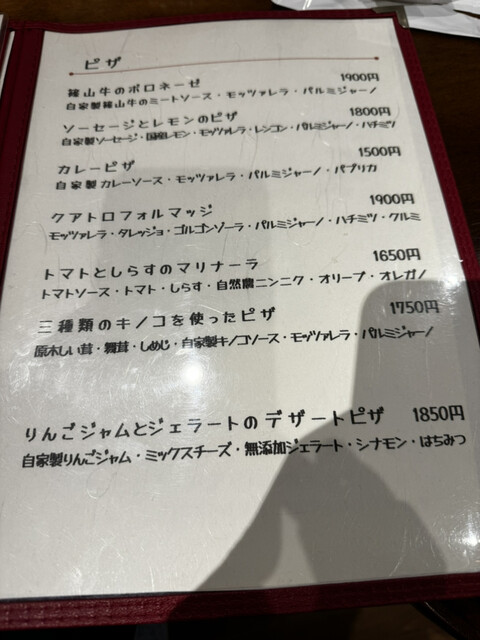 ピザ
篠山牛のボロネーゼ 1900円
自家製篠山牛のミートソース・モッツァレラ・パルミジャーノ
ソーセージとレモンのピザ 1800円
自家製ソーセージ・国産レモン・モッツァレラ・レンコン・パルミジャーノ・ハチミツ
カレーピザ 1500円
自家製カレーソース・モッツァレラ・パルミジャーノ・パプリカ
クアトロフォルマッジ 1900円
モッツァレラ・タレッジョ・ゴルゴンゾーラ・パルミジャーノ・ハチミツ・クルミ
トマトとしらすのマリナーラ 1650円
トマトソース・トマト・しらす・自然農ニンニク・オリーブ・オレガノ
三種類のキノコを使ったピザ 1750円
原木しい茸・舞茸・しめじ・自家製キノコソース・モッツァレラ・パルミジャーノ
りんごジャムとジェラートのデザートピザ 1850円
自家製りんごジャム・ミックスチーズ・無添加ジェラート・シナモン・はちみつ